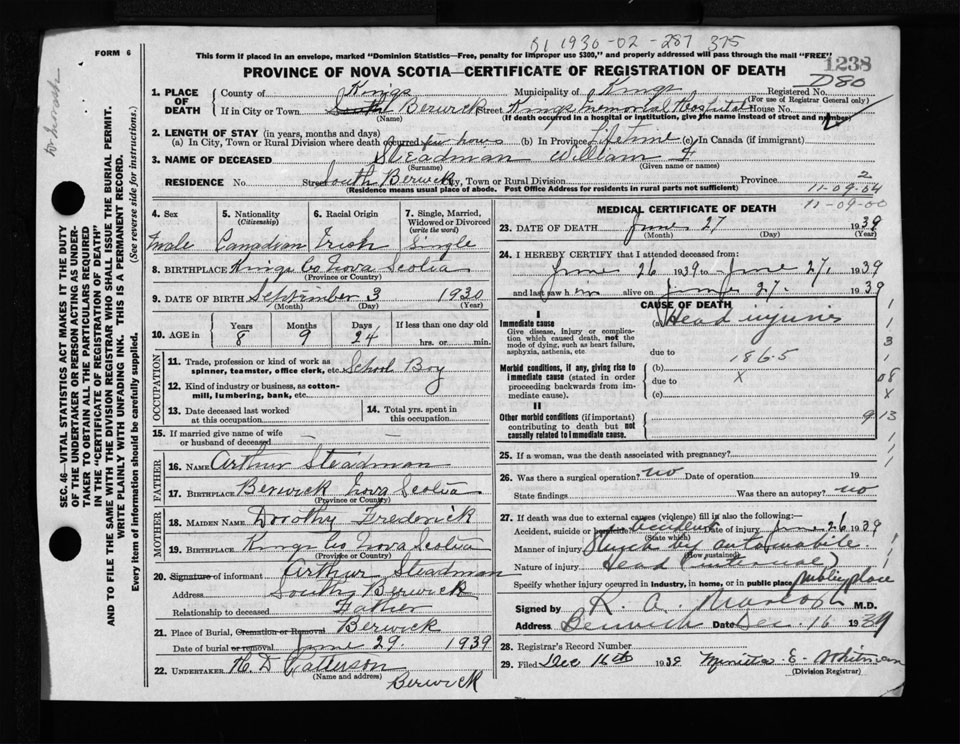 D1 1930-02-287 375
FORM 6
This form if placed in an envelope, marked "Dominion Statistics—Free, penalty for improper use $300," and properly addressed will pass through the mail "FREE"
1238
PROVINCE OF NOVA SCOTIA—CERTIFICATE OF REGISTRATION OF DEATH
D80
1. PLACE OF DEATH
County of Kings Municipality of Kings Registered No.
(For use of Registrar General only)
If in City or Town Berwick Street Kings Memorial Hospital House No.
(Name) (If death occurred in a hospital or institution, give the name instead of street and number)
2. LENGTH OF STAY (in years, months and days)
(a) In City, Town or Rural Division where death occurred few hours (b) In Province Lifetime (c) In Canada (if immigrant)
3. NAME OF DECEASED Steadman William F
(Surname) (Given name or names)
RESIDENCE No. Street South Berwick City, Town or Rural Division Province 2
(Residence means usual place of abode. Post Office Address for residents in rural parts not sufficient)
11-09.04
11-09-00
SEC. 46—VITAL STATISTICS ACT MAKES IT THE DUTY
OF THE UNDERTAKER OR PERSON ACTING AS UNDER-
TAKER TO OBTAIN ALL THE PARTICULARS REQUIRED
IN THE "CERTIFICATE OF REGISTRATION OF DEATH"
AND TO FILE THE SAME WITH THE DIVISION REGISTRAR WHO SHALL ISSUE THE BURIAL PERMIT.
WRITE PLAINLY WITH UNFADING INK. THIS IS A PERMANENT RECORD.
Every item of information should be carefully supplied. (See reverse side for instructions.)
4. Sex
male
5. Nationality
(Citizenship)
Canadian
6. Racial Origin
Irish
7. Single, Married,
Widowed or Divorced
(write the word)
Single
8. BIRTHPLACE Kings Co Nova Scotia
(Province or Country)
9. DATE OF BIRTH September 3 1930
(Month) (Day) (Year)
10. AGE in
Years Months Days If less than one day old
8 9 24 hrs. or min.
OCCUPATION
11. Trade, profession or kind of work as
spinner, teamster, office clerk, etc. School Boy
12. Kind of industry or business, as cotton-
mill, lumbering, bank, etc.
13. Date deceased last worked
at this occupation
14. Total yrs. spent in
this occupation
15. If married give name of wife
or husband of deceased
FATHER
16. NAME Arthur Steadman
17. BIRTHPLACE Berwick Nova Scotia
(Province or Country)
MOTHER
18. MAIDEN NAME Dorothy Frederick
19. BIRTHPLACE Kings Co Nova Scotia
(Province or Country)
20. Signature of informant Arthur Steadman
Address South Berwick
Relationship to deceased Father
21. Place of Burial, Cremation or Removal Berwick
Date of burial or removal June 29. 1939
22. UNDERTAKER H. D Patterson
(Name and address)
Berwick
MEDICAL CERTIFICATE OF DEATH
23. DATE OF DEATH June 27 1939
(Month) (Day) (Year)
24. I HEREBY CERTIFY that I attended deceased from:
June 26 1939 to June 27, 1939
and last saw him alive on June 27. 1939
CAUSE OF DEATH
I
Immediate cause (a) Head injuries
Give disease, injury or complica-
tion which caused death, not the
mode of dying, such as heart failure,
asphyxia, asthenia, etc.
due to 186.5
Morbid conditions, if any, giving rise to
immediate cause (stated in order
proceeding backwards from im-
mediate cause).
(b)
due to X
(c)
II
Other morbid conditions (if important)
contributing to death but not
causally related to immediate cause.
1
1
3
1
08
X
9 13
25. If a woman, was the death associated with pregnancy?
26. Was there a surgical operation? no Date of operation 19
State findings Was there an autopsy? no
27. If death was due to external causes (violence) fill in also the following:
Accident, suicide or homicide? Accident Date of injury June 26 1939
(State which)
Manner of injury Struck by automobile
(How sustained)
Nature of injury Head (internal)
Specify whether injury occurred in industry, in home, or in public place public place
Signed by R. A. M.D.
Address Berwick Date Dec. 16 1939
28. Registrar's Record Number
29. Filed Dec 16th 1939 Minita E. Whitman
(Division Registrar)